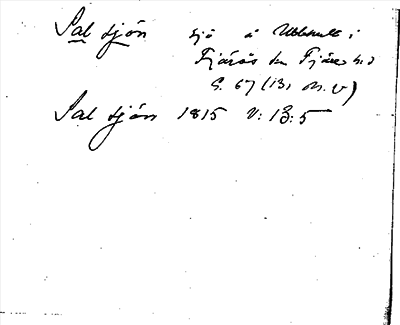 Sal sjön sjö å Ubbhult i
Fjärås sn Fjäre hd
S. 67 (13, ) 
Sal sjön 1815 V: 13: 5